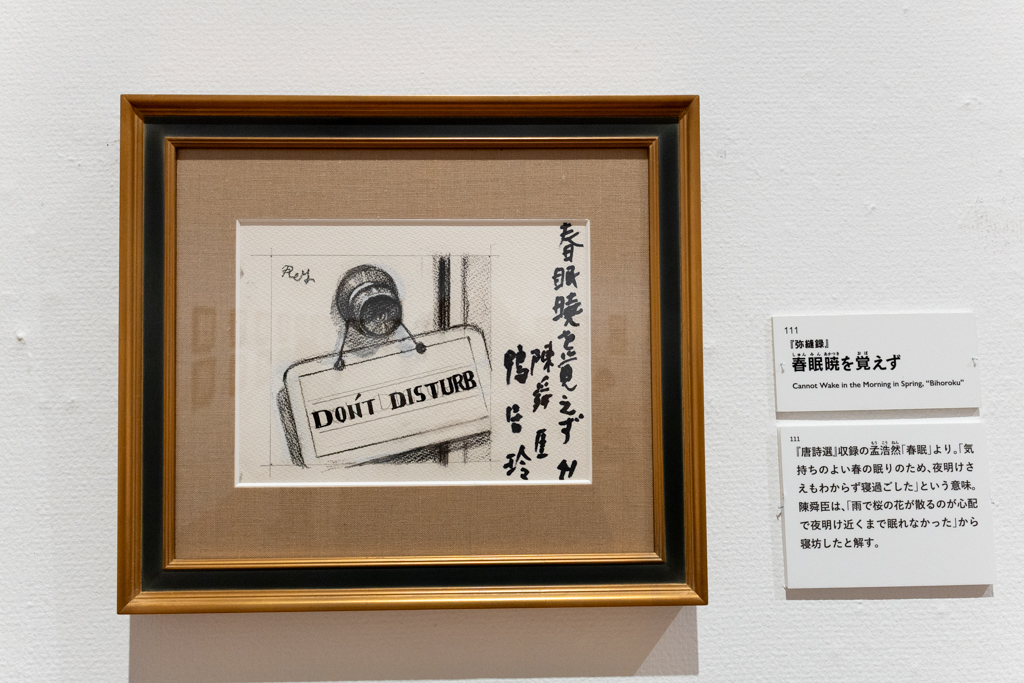 Rey
DON'T DISTURB
春眠暁を覚えず
陳舜臣
鴨居玲
111
『弥縫録』
春眠暁を覚えず
Cannot Wake in the Morning in Spring, “Bihoroku”
111
『唐詩選』収録の孟浩然「春眠」より。「気
持ちのよい春の眠りのため、夜明けさ
えもわからず寝過ごした」という意味。
陳舜臣は、「雨で桜の花が散るのが心配
で夜明け近くまで眠れなかった」から
寝坊したと解す。